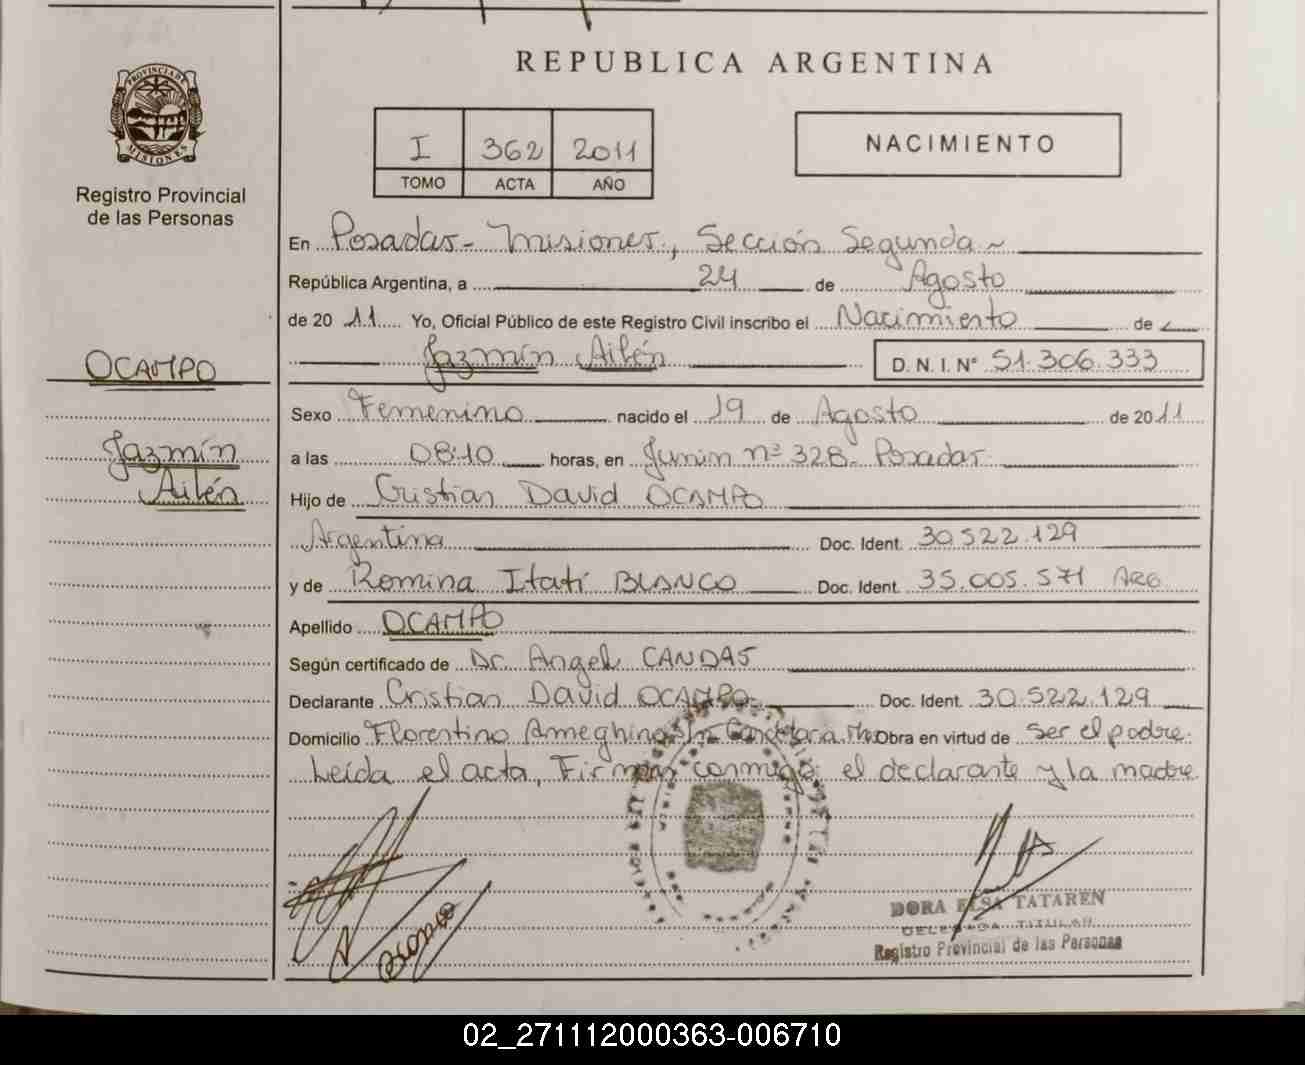 REPUBLICA ARGENTINA
PROVINCIA DE MISIONES
Registro Provincial
de las Personas
I 362 2011
TOMO ACTA AÑO
NACIMIENTO
En Posadas - Misiones, Sección Segunda
República Argentina, a 24 de Agosto
de 2011 Yo, Oficial Público de este Registro Civil inscribo el Nacimiento de
Jazmín Ailén D. N. I. N° 51.306.333
OCAMPO
Jazmín
Ailén
Sexo Femenino nacido el 19 de Agosto de 2011
a las 08:10 horas, en Junín nº 328 - Posadas
Hijo de Cristian David OCAMPO
Argentina Doc. Ident. 30.522.129
y de Romina Itatí BLANCO Doc. Ident. 35.005.571 ARG
Apellido OCAMPO
Según certificado de Dr. Angel CANDAS
Declarante Cristian David OCAMPO Doc. Ident. 30.522.129
Domicilio Florentino Ameghino S/n Candelaria Mnes Obra en virtud de ser el padre.
Leída el acta, Firman conmigo el declarante y la madre
Blanco
DORA ELSA TATAREN
DELEGADA TITULAR
Registro Provincial de las Personas
02_271112000363-006710